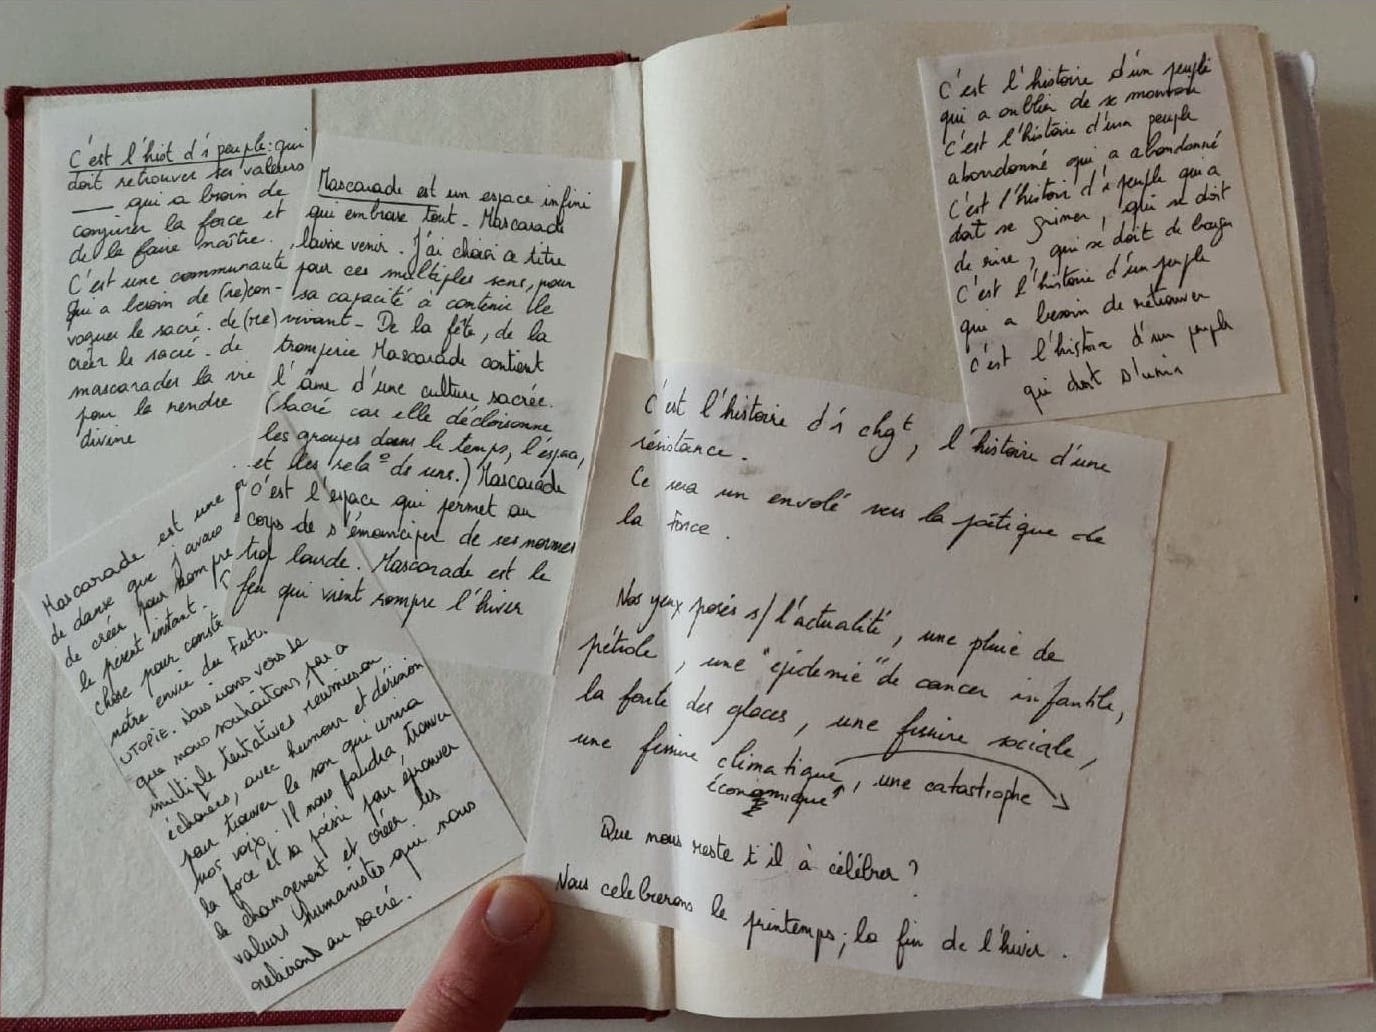 C'est l'hist d'1 peuple : qui
doit retrouver ses valeurs
___ qui a besoin de
conjurer la force et
de la faire maître.
C'est une communauté
qui a besoin de (re)con-
voquer le sacré. de (re)
créer le sacré. de
mascarader la vie
pour la rendre
divine
Mascarade est un espace infini
qui embrase tout. Mascarade
laisse venir. J'ai choisi ce titre
pour ces multiples sens, pour
sa capacité à contenir le
vivant. De la fête, de la
tromperie Mascarade contient
l'âme d'une culture sacrée.
(Sacré car elle décloisonne
les groupes dans le temps, l'espace,
et les rela° de uns.) Mascarade
c'est l'espace qui permet au
corps de s'émanciper de ses normes
trop lourde. Mascarade est le
feu qui vient rompre l'hiver
Mascarade est une
de danse que j'avais
de créer pour rompre
le présent instant.
chose pour
notre envie du Futur
UTOPIE. Nous irons vers le
que nous souhaitons par a
multiple tentatives
échouées, avec humour et dérision
pour trouver le son qui unira
nos voix. Il nous faudra trouver
la force et sa poésie pour éprouver
le changement et créer les
valeurs humanistes qui nous
relierons au sacré.
C'est l'histoire d'un peuple
qui a oublier de se
C'est l'histoire d'un peuple
abandonné qui a abandonné
C'est l'histoire d'1 peuple qui a
doit se grimer, qui se doit
de rire, qui se doit de bouger
C'est l'histoire d'un peuple
qui a besoin de retrouver
C'est l'histoire d'un peuple
qui doit s'unir
C'est l'histoire d'1 chgt, l'histoire d'une
résistance.
Ce sera un envolé vers la poétique de
la Force.
Nos yeux posés s/ l'actualité, une pluie de
pétrole, une "épidémie" de cancer infantile,
la fonte des glaces, une fissure sociale,
une fissure climatique, une catastrophe
économique
Que nous reste t il à célébrer ?
Nous celebrerons le printemps ; la fin de l'hiver.